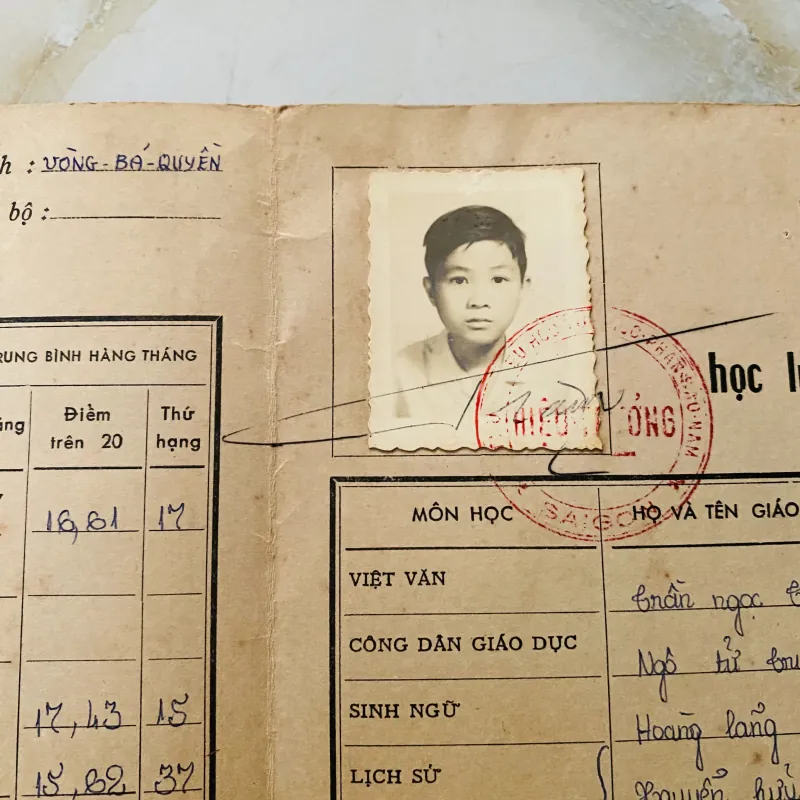 h : VÒNG-BÁ-QUYỀN
bộ :
RUNG BÌNH HÀNG THÁNG
Điểm
trên 20
Thứ
hạng
16,61 17
17,43 15
15,62 37
học l
HIỆU TRƯỞNG
SAIGON
MÔN HỌC
HỌ VÀ TÊN GIÁO
VIỆT VĂN
Trần ngọc
CÔNG DÂN GIÁO DỤC
Ngô tử
SINH NGỮ
Hoàng lảng
LỊCH SỬ